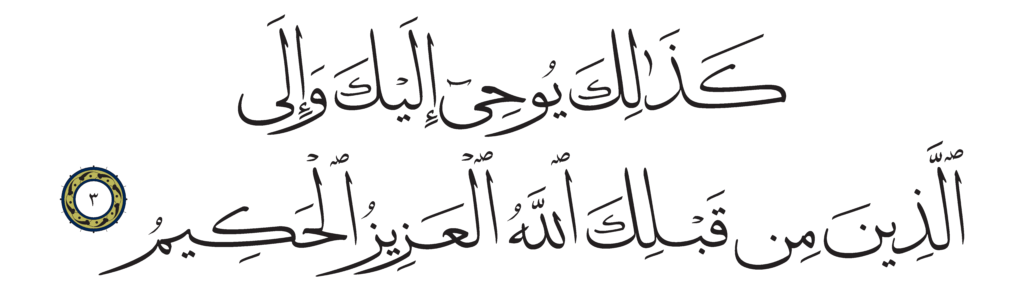 كَذَٰلِكَ يُوحِىٓ إِلَيْكَ وَإِلَى
ٱلَّذِينَ مِن قَبْلِكَ ٱللَّهُ ٱلْعَزِيزُ ٱلْحَكِيمُ ٣